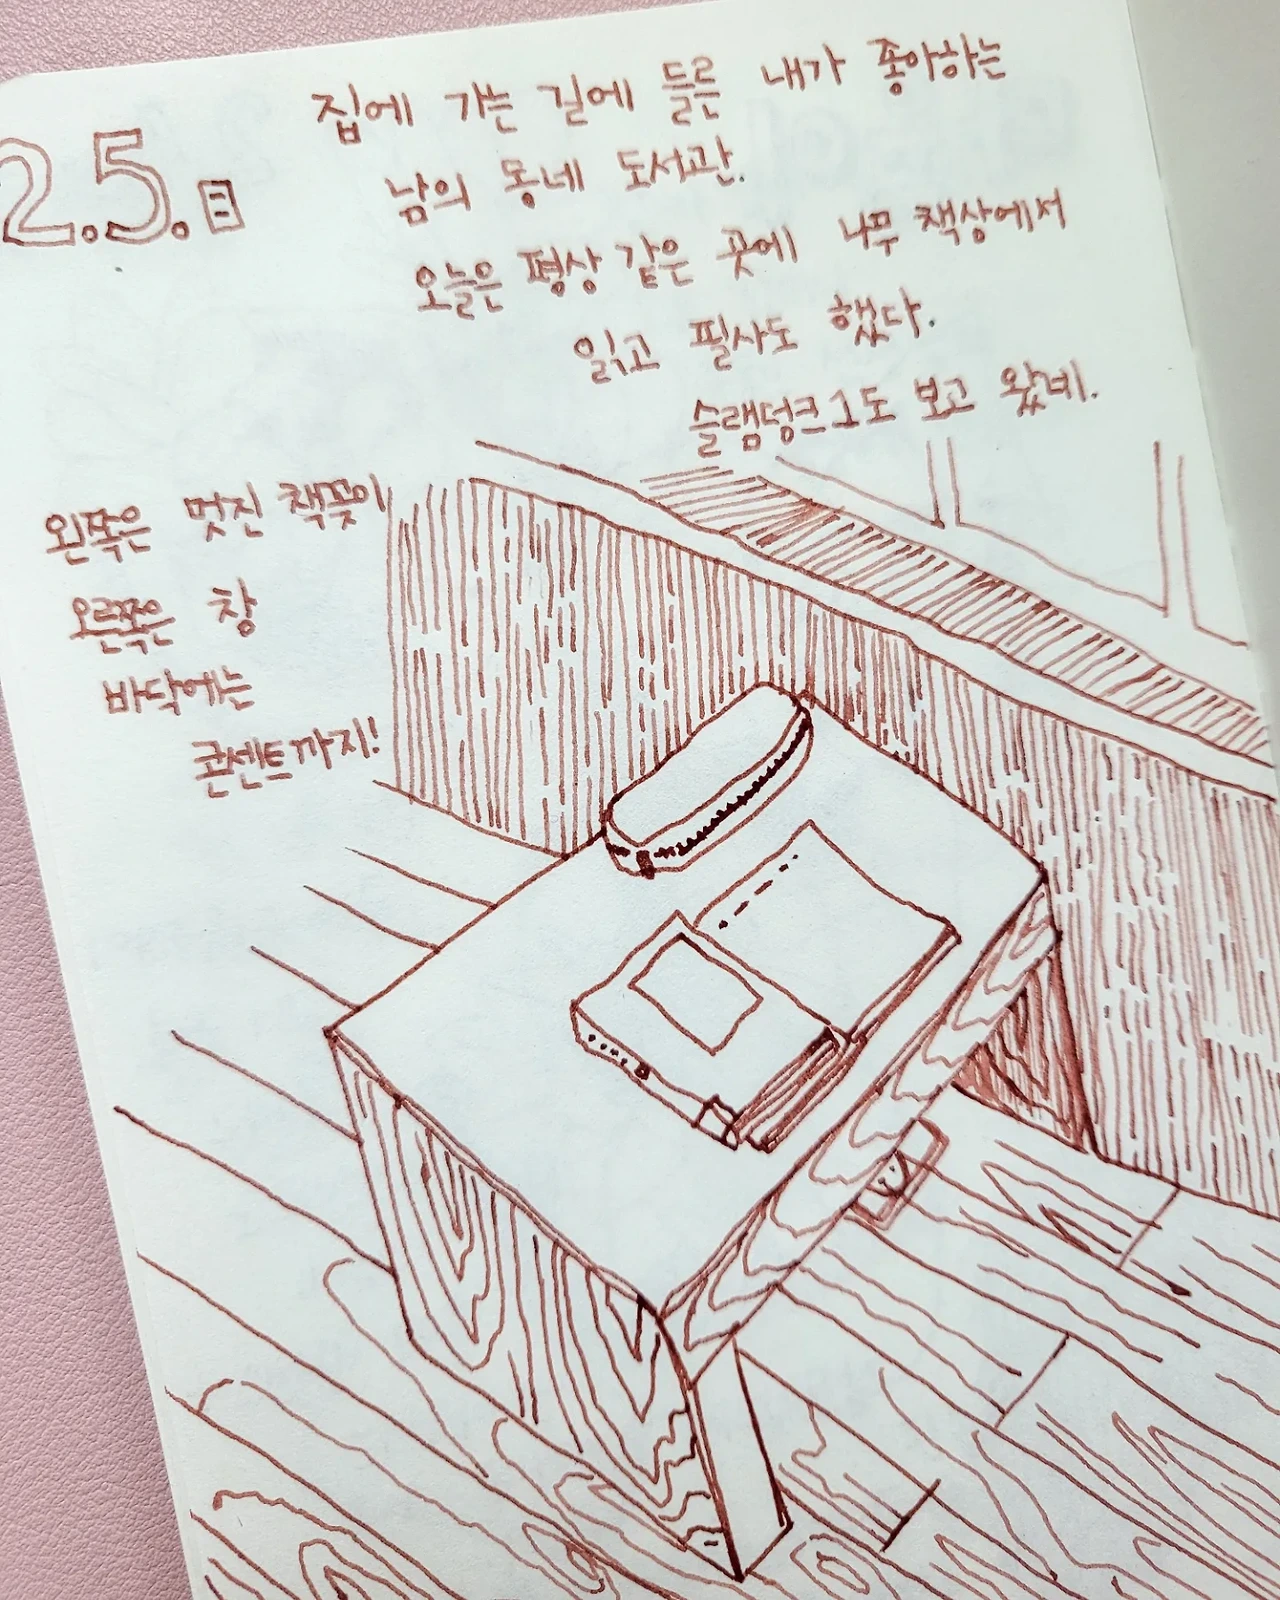 2.5.日
집에 가는 길에 들른 내가 좋아하는
남의 동네 도서관.
오늘은 평상 같은 곳에 나무 책상에서
읽고 필사도 했다.
슬램덩크1도 보고 왔네.
왼쪽은 멋진 책꽂이
오른쪽은 창
바닥에는
콘센트까지!